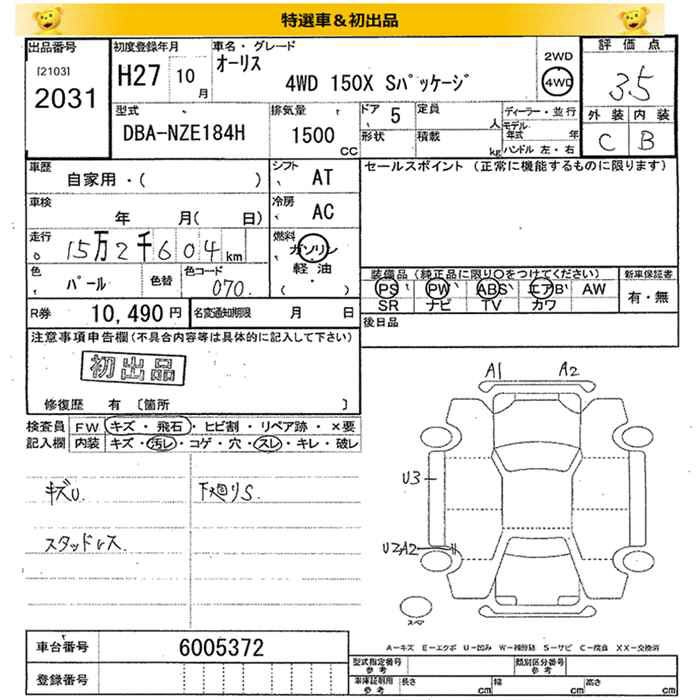 特選車＆初出品
出品番号 [2103] 2031
初度登録年月 H27 10月
車名・グレード オーリス 4WD 150X Sパッケージ
2WD 4WD
評価点 3.5
外装 内装
C B
型式 DBA-NZE184H
排気量 1500 CC
ドア 5
定員 人
形状
積載 kg
ディーラー・並行
モデル年式 年
ハンドル 左・右
車歴 自家用・( )
シフト AT
セールスポイント (正常に機能するものに限ります)
車検 年 月( 日)
冷房 AC
走行 15万2千604 km
燃料 ガソリン 軽油 ( ・ )
色 パール 色替 色コード 070
装備品 (純正品に限り○をつけてください) 新車保証書
PS PW ABS エアB AW 有・無
SR ナビ TV カワ
R券 10,490円 名変通知期限 月 日
後日品
注意事項申告欄(不具合内容等は具体的に記入して下さい)
初出品
修復歴 有 〔箇所 〕
検査員記入欄 FW キズ・飛石・ヒビ割・リペア跡・×要
内装 キズ・汚レ・コゲ・穴・スレ・キレ・破レ
キズU 下廻りS.
スタッドレス
A1 A2
U3
UZA2
スペア
A－キズ E－エクボ U－凹み W－補修跡 S－サビ C－腐食 XX－交換済
車台番号 6005372
登録番号
型式指定番号 参考 類別区分番号 参考
車庫証明用 参考 長さ cm 幅 cm 高さ cm